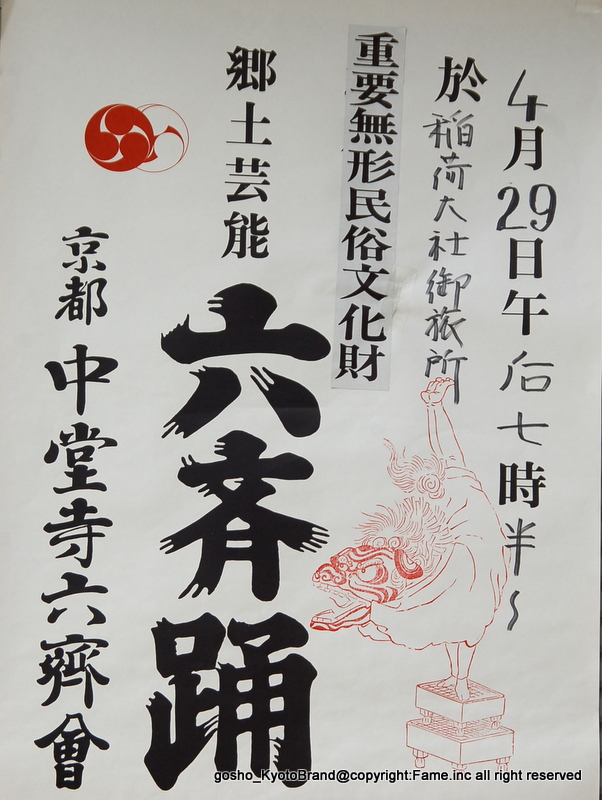 4月29日午后七時半～
於稲荷大社御旅所
重要無形民俗文化財
郷土芸能
六斉踊
京都 中堂寺六齊會
gosho_KyotoBrand@copyright:Fame.inc all right reserved